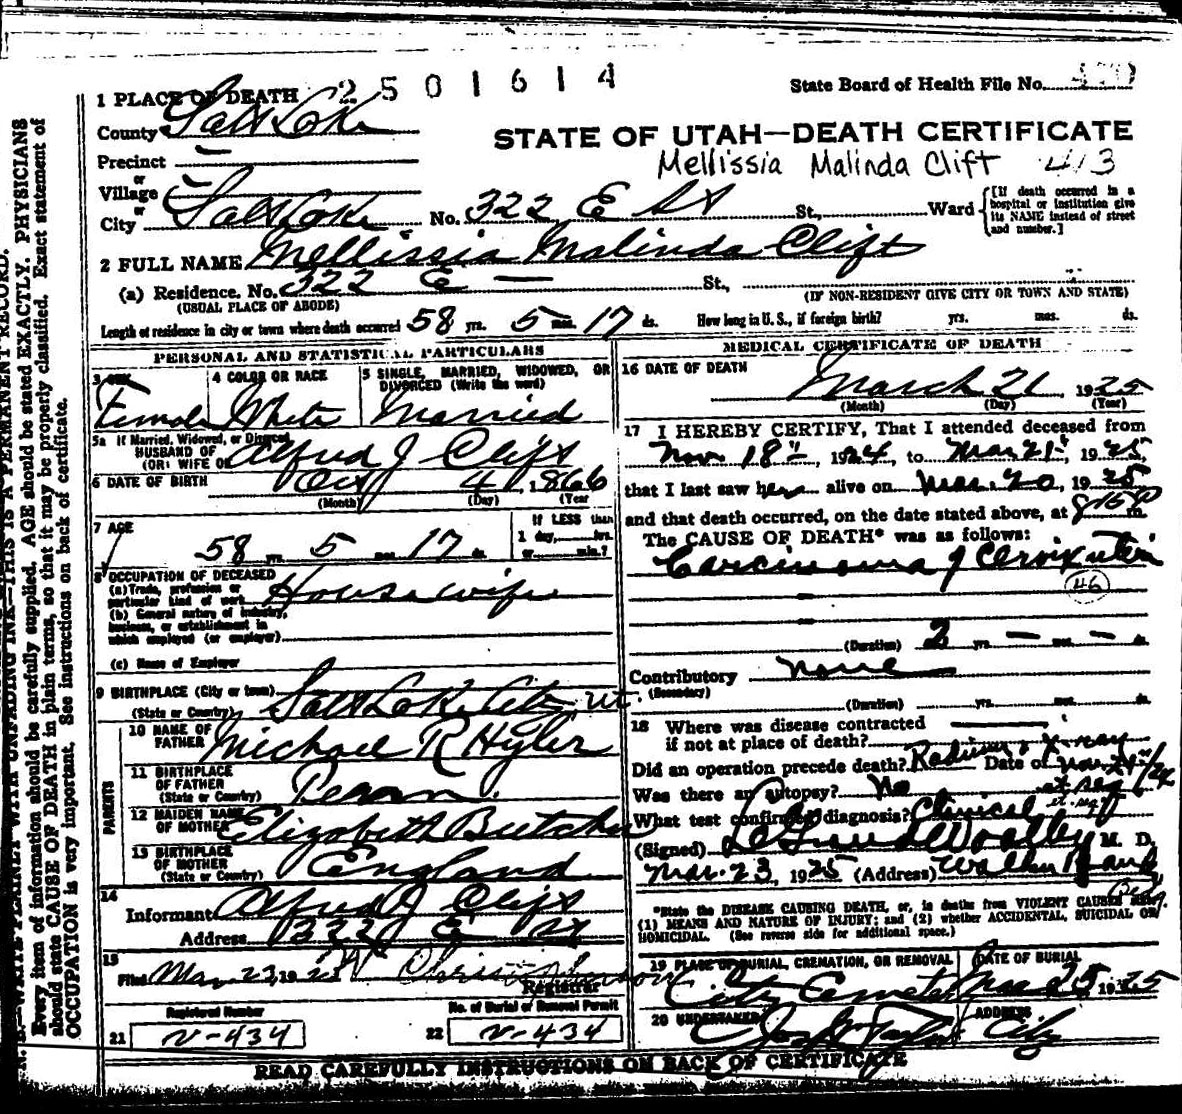 2501614
State Board of Health File No.
1 PLACE OF DEATH
County Salt Lake
STATE OF UTAH—DEATH CERTIFICATE
Precinct —
Mellissia Malinda Clift 413
or
Village —
or
City Salt Lake No. 322 E St St., Ward
[If death occurred in a hospital or institution give its NAME instead of street and number.]
2 FULL NAME Mellissia Malinda Clift
(a) Residence. No. 322 E — St.,
(USUAL PLACE OF ABODE) (IF NON-RESIDENT GIVE CITY OR TOWN AND STATE)
Length of residence in city or town where death occurred 58 yrs. 5 mos. 17 ds. How long in U. S., if foreign birth? yrs. mos. ds.
PERSONAL AND STATISTICAL PARTICULARS
3 SEX
Female
4 COLOR OR RACE
White
5 SINGLE, MARRIED, WIDOWED, OR
DIVORCED (Write the word)
Married
5a If Married, Widowed, or Divorced
HUSBAND OF
(OR) WIFE OF Alfred J Clift
6 DATE OF BIRTH Oct 4, 1866
(Month) (Day) (Year
7 AGE
58 yrs. 5 mos. 17 ds.
If LESS than
1 day, hrs.
or min.?
8 OCCUPATION OF DECEASED
(a) Trade, profession or
particular kind of work Housewife
(b) General nature of industry,
business, or establishment in
which employed (or employer)
(c) Name of Employer
9 BIRTHPLACE (City or town) Salt Lake City, Ut.
(State or Country)
PARENTS
10 NAME OF
FATHER Michael R Hyler
11 BIRTHPLACE
OF FATHER
(State or Country)
12 MAIDEN NAME
OF MOTHER Elizabeth Butcher
13 BIRTHPLACE
OF MOTHER
(State or Country) England
14
Informant Alfred J Clift
Address 322 E St
15
Filed Mar 23, 19
Registrar
Registered Number
21 V-434
No. of Burial or Removal Permit
22 V-434
MEDICAL CERTIFICATE OF DEATH
16 DATE OF DEATH
March 21 1925
(Month) (Day) (Year)
17 I HEREBY CERTIFY, That I attended deceased from
Nov 18th, 1924, to Mar 21st, 1925,
that I last saw her alive on Mar. 20, 1925
and that death occurred, on the date stated above, at 8 15 P m.
The CAUSE OF DEATH* was as follows:
Carcinoma of Cervix uteri
46
(Duration) 2 yrs. — mos. — ds.
Contributory none
(Secondary)
(Duration) yrs. mos. ds.
18 Where was disease contracted
if not at place of death?
Did an operation precede death? Radium & X-ray Date of Nov. 24/24
Was there an autopsy? No et seq
What test confirmed diagnosis? Clinical et. seq
(Signed) LeGrand Woolley M. D.
Mar. 23, 1925 (Address) Walker Bank
Bldg
*State the DISEASE CAUSING DEATH, or, in deaths from VIOLENT CAUSES state,
(1) MEANS AND NATURE OF INJURY; and (2) whether ACCIDENTAL, SUICIDAL OR
HOMICIDAL. (See reverse side for additional space.)
19 PLACE OF BURIAL, CREMATION, OR REMOVAL
City Cemetery
DATE OF BURIAL
Mar 25 1925
20 UNDERTAKER
Jos Wm Taylor
ADDRESS
City
READ CAREFULLY INSTRUCTIONS ON BACK OF CERTIFICATE
Every item of information should be carefully supplied. AGE should be stated EXACTLY. PHYSICIANS
should state CAUSE OF DEATH in plain terms, so that it may be properly classified. Exact statement of
OCCUPATION is very important. See instructions on back of certificate.